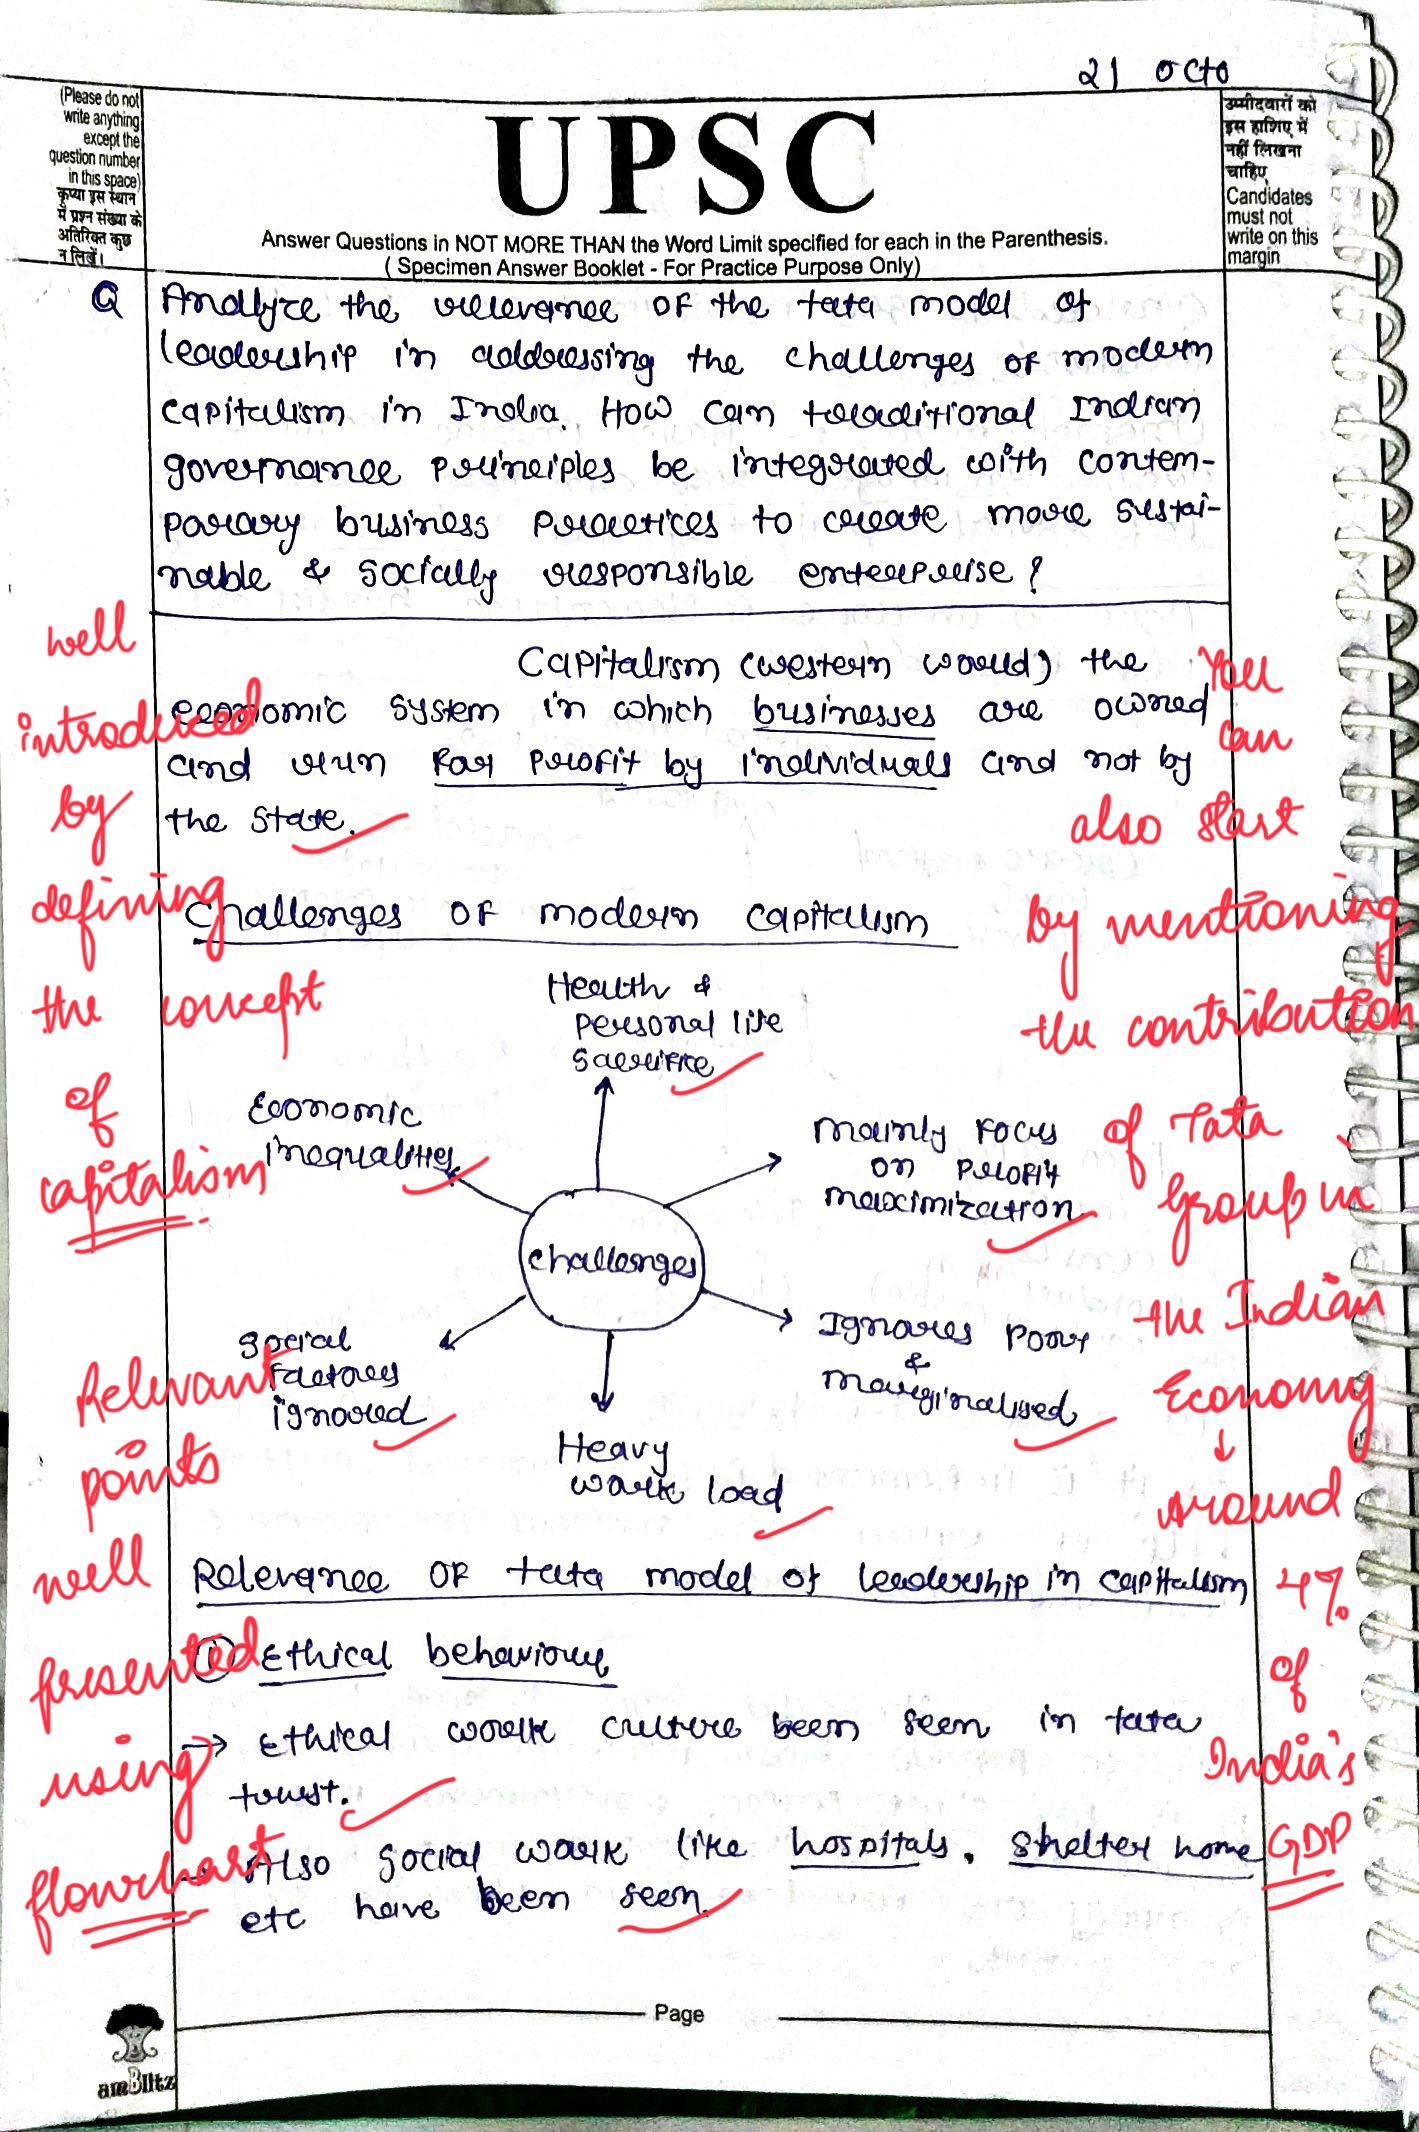 21 Octo
(Please do not
write anything
except the
question number
in this space)
कृप्या इस स्थान
में प्रश्न संख्या के
अतिरिक्त कुछ
न लिखें।
UPSC
Answer Questions in NOT MORE THAN the Word Limit specified for each in the Parenthesis.
( Specimen Answer Booklet - For Practice Purpose Only)
उम्मीदवारों को
इस हाशिए में
नहीं लिखना
चाहिए
Candidates
must not
write on this
margin
Q Analyze the relevance of the tata model of
leadership in addressing the challenges of modern
capitalism in India. How can traditional Indian
governance principles be integrated with contem-
porary business practices to create more sustai-
nable & socially responsible enterprise?
Capitalism (western world) the
economic system in which businesses are owned
and run for profit by individuals and not by
the state.
well
introduced
by
defining
the concept
of
capitalism
You
can
also start
by mentioning
the contribution
of Tata
Group in
the Indian
Economy
↓
around
4%
of
India's
GDP
Challenges of modern capitalism
Health &
personal life
sacrifice
Economic
inequalities
Mainly focus
on profit
maximization
Challenges
Social
factores
ignored
Ignores poor
&
marginalised
Heavy
work load
Relevant
points
well
presented
using
flowchart
Relevance of tata model of leadership in capitalism
① Ethical behaviour
→ Ethical work culture been seen in tata
trust.
→ Also social work like hospitals, shelter home
etc have been seen.
Page
amBlitz